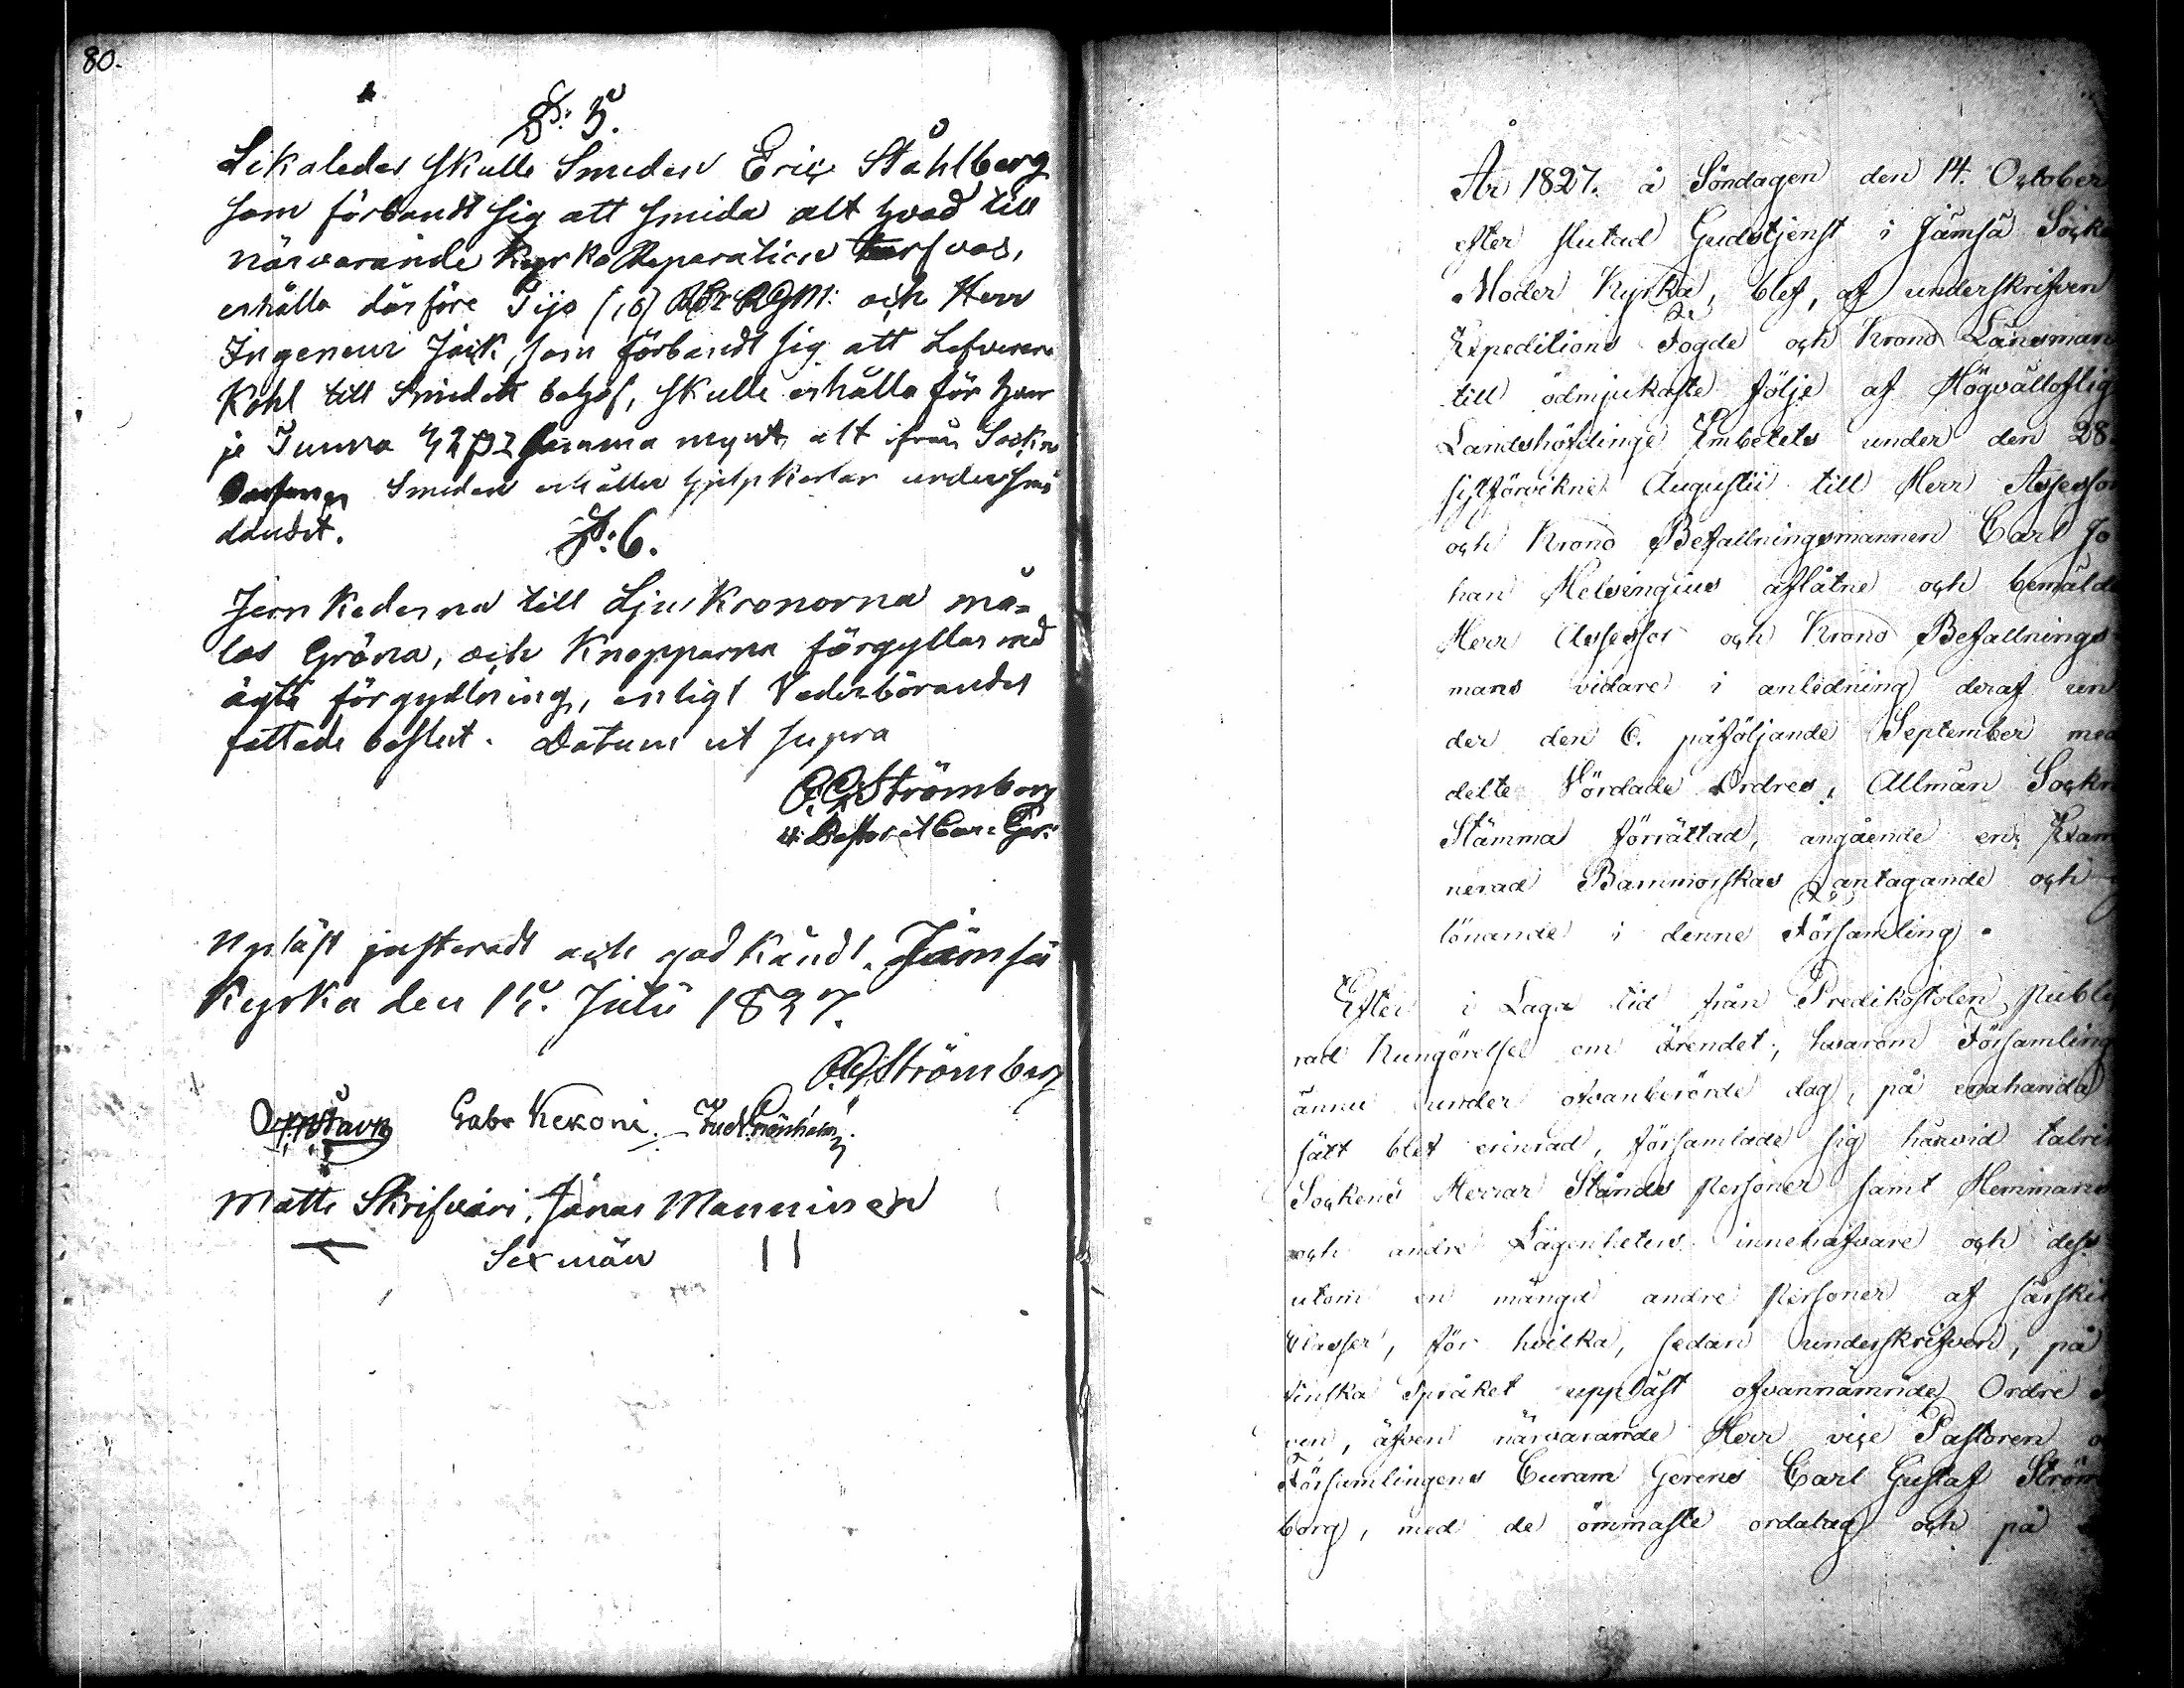 80.
§: 5.
Likaledes skulle Smeden Eric Ståhlberg
som förbandt sig att smida alt hvad till
närvarande Kyrko Reparation tarfvas,
erhålla därföre Tijo (10) och Herr
Ingeneur Jack, som förbandt sig att Lefverera
Kohl till Smidets behof, skulle erhålla för hvar
je Tunna samma mynt, alt ifrån Sockne
Smeden erhåller hjelpkarlar under smi
dandet.
§: 6.
Jern Kederna till Ljus Kronorna må-
las Gröna, och Knopparna förgyllas med
ägta förgyllning, enligt Vederbörandes
fattade beslut. Datum ut supra
C. G. Strömborg
v. Pastor et Cur: Ger:
Upläst justeradt och godkändt. Jämsä
Kyrka den 15. Julii 1827.
C. G. Strömborg
Gabr Kekoni.
Matts Skrifvari, Jonas Manninen
Sexmän
År 1827. å Söndagen den 14. October
efter slutad Gudstjenst i Jämsä Socke
Moder Kyrka, blef, af underskrifven
Expeditions Fogde och Krono Länsman
till ödmjukaste följe af Högvälloflig
Landshöfdinge Embetets under den 28.
sistförvikne Augustii till Herr Assessor
och Krono Befallningsmannen Carl Jo
han Helsingius aflåtne och bemälde
Herr Assessor och Krono Befallnings-
mans vidare i anledning deraf un
der den 6. påföljande September med
delte Vördade Ordres, Allmän Sockn
Stämma förrättad, angående en Exam
nerad Barnmorskas antagande och
lönande i denne Församling.
Efter i Laga tid från Predikostolen Publi
rad Kungörelse om ärendet, hvarom Församling
ännu under ofvanberörde dag, på enahanda
sätt blef erinrad, församlade sig härvid talri
Sockens Herrar Stånds Personer samt Hemmans
och andre Lägenheters innehafvare och dess
utom en mängd andre Personer af särski
Classer, för hvilka, sedan underskrifven, på
Finska Språket uppläst ofvannämnde Ordre
ven, äfven närvarande Herr vice Pastoren o
Församlingens Curam Gerens Carl Gustaf Ström
borg, med de ömmaste ordalag och på